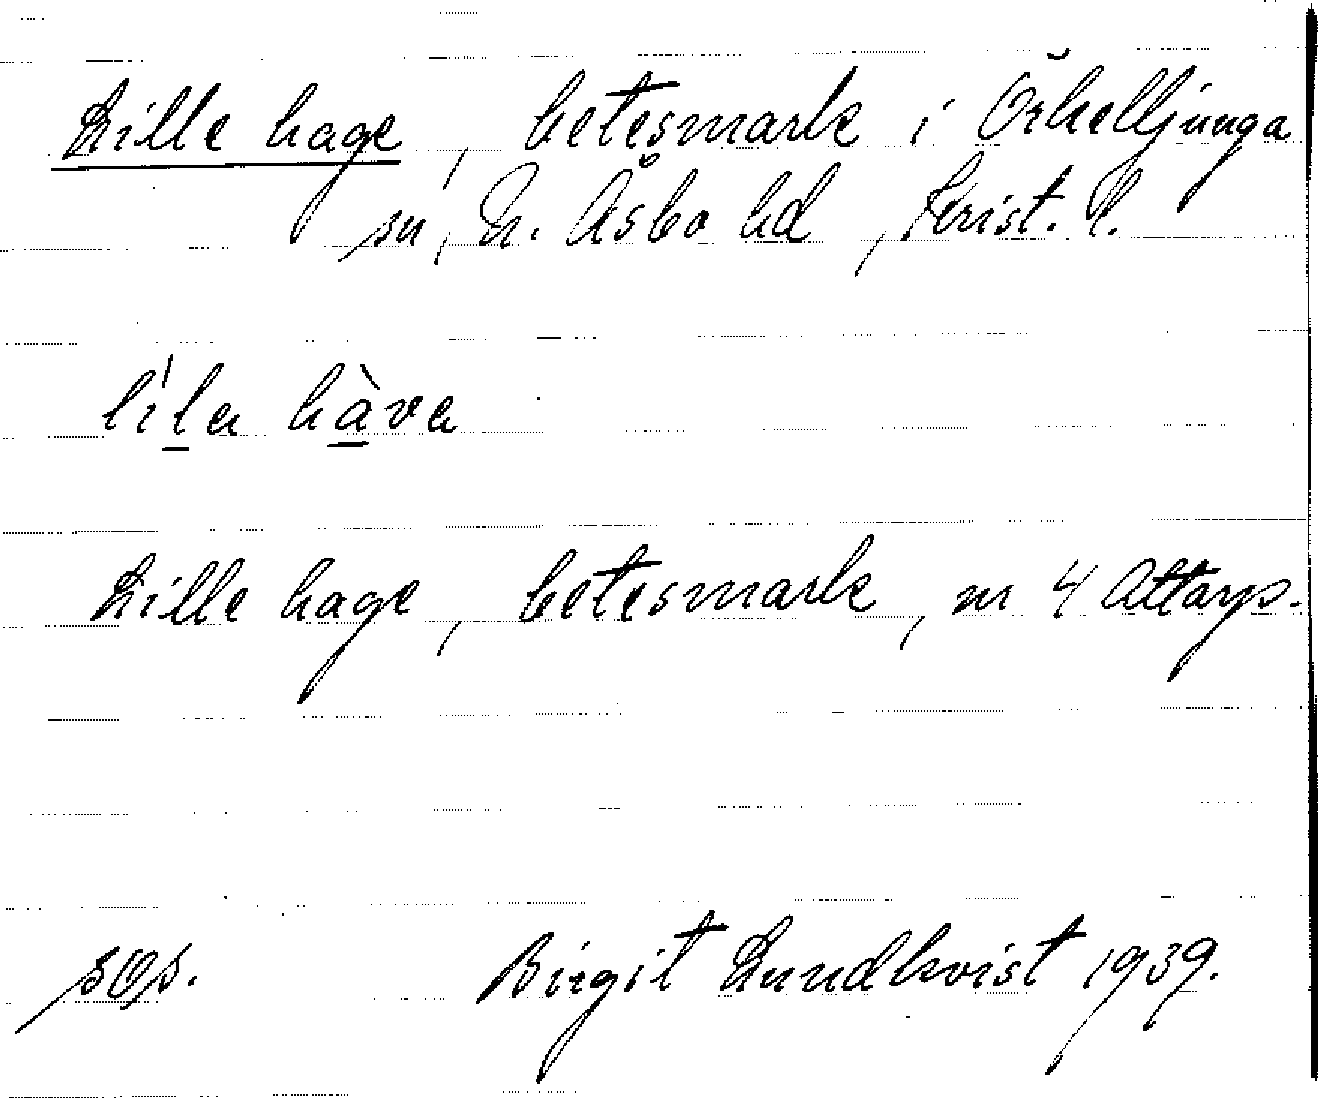 Lille hage, betesmark i Örkelljunga
sn, N. Åsbo hd, Krist. l.
lila hàva
Lille hage, betesmark, nr 4 Attarps.
Birgit Lundkvist 1939.